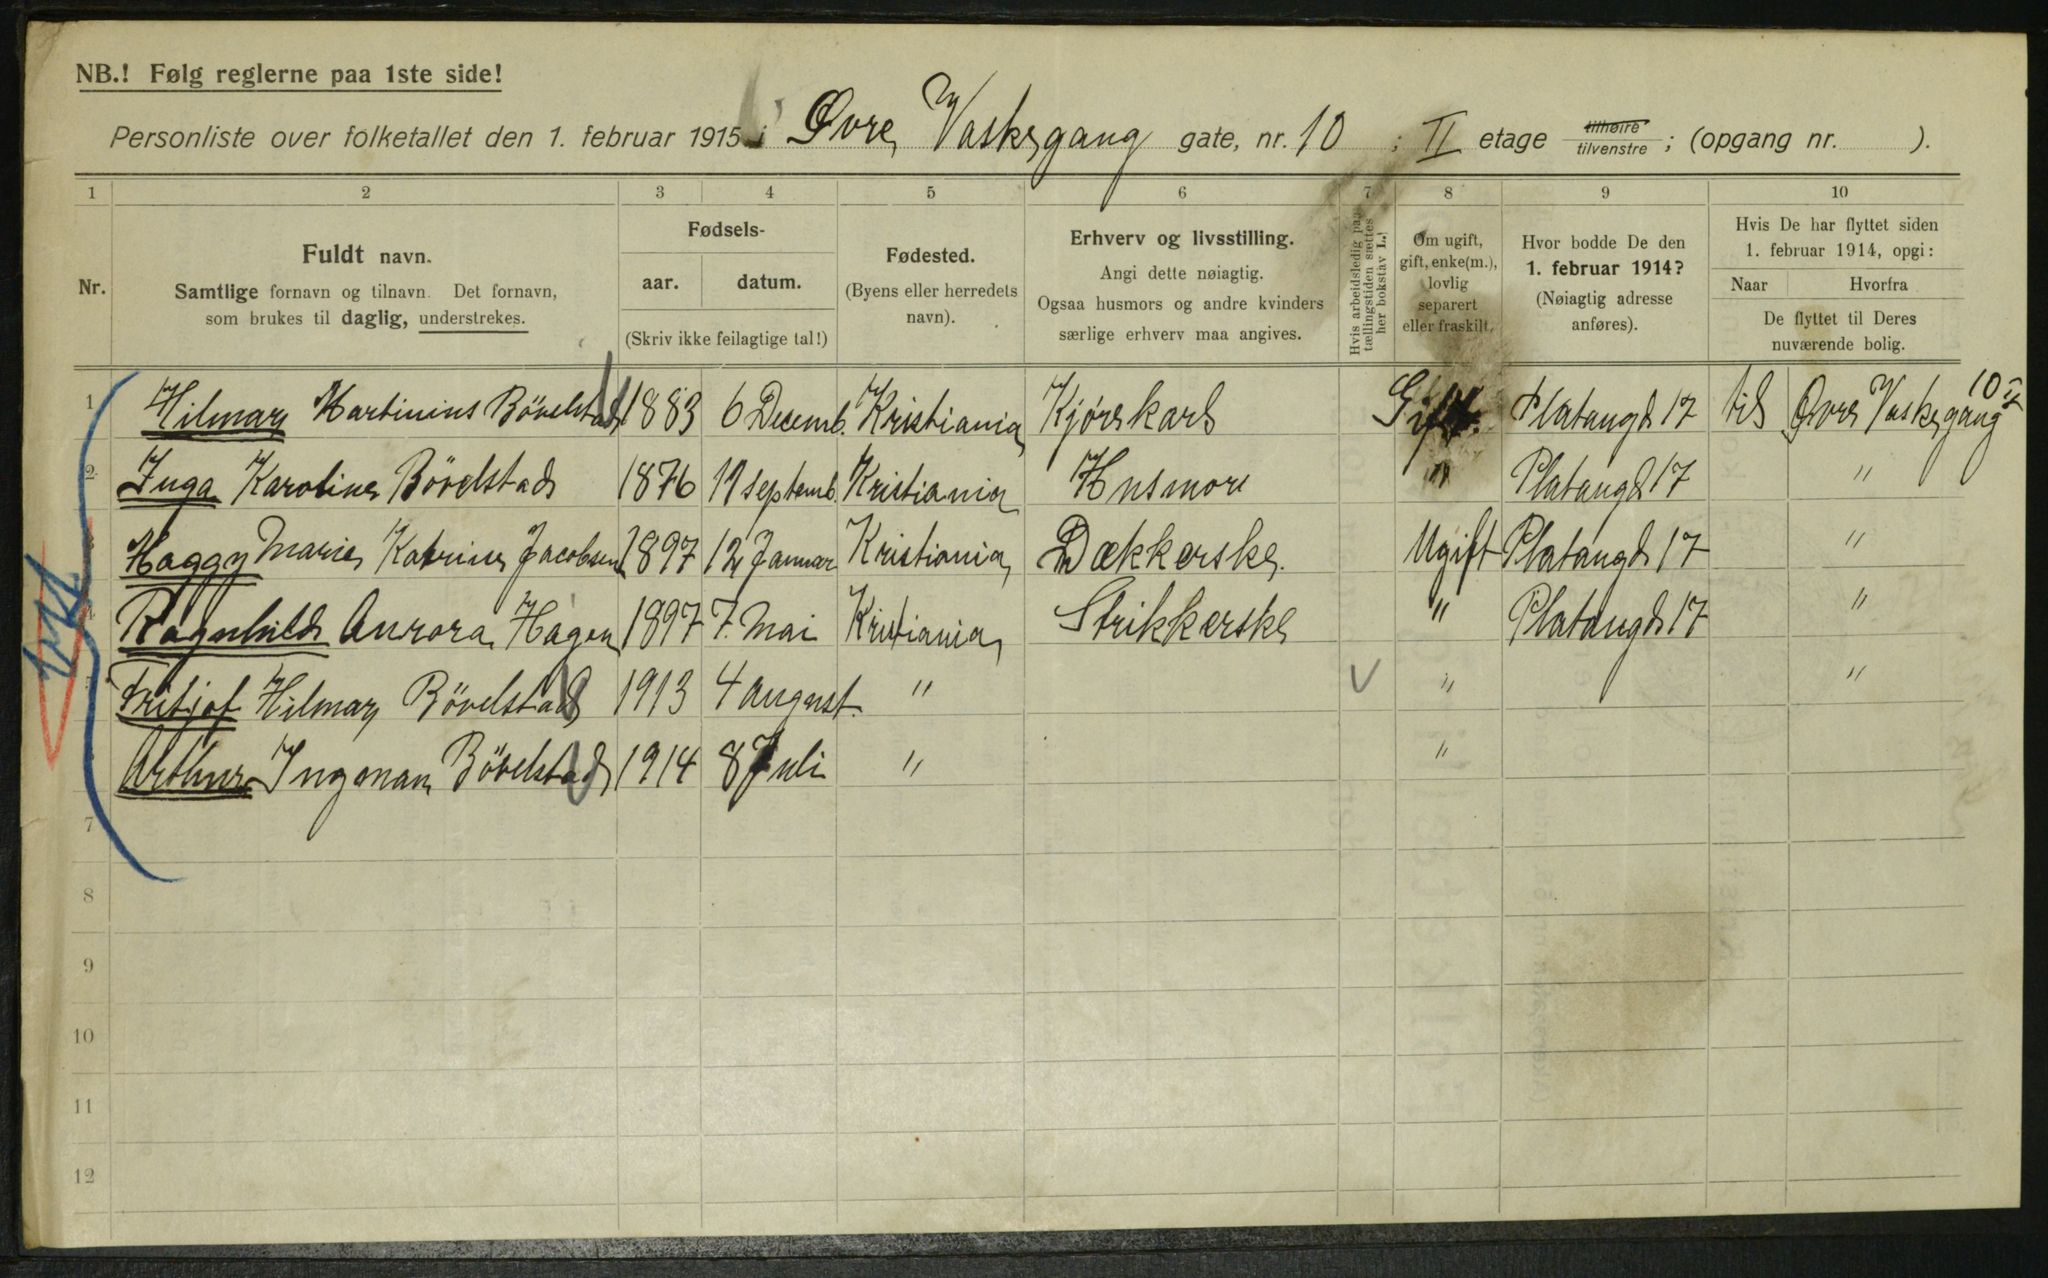 NB.! Følg reglerne paa 1ste side!
Personliste over folketallet den 1. februar 1915 i Øvre Vaskegang gate, nr. 10 ; II etage tilhøire tilvenstre ; (opgang nr. ).
1 2 3 4 5 6 7 8 9 10
Nr.
Fuldt navn.
Samtlige fornavn og tilnavn. Det fornavn,
som brukes til daglig, understrekes.
Fødsels-
aar. datum.
(Skriv ikke feilagtige tal!)
Fødested.
(Byens eller herredets
navn).
Erhverv og livsstilling.
Angi dette nøiagtig.
Ogsaa husmors og andre kvinders
særlige erhverv maa angives.
Hvis arbeidsledig paa
tællingstiden sættes
her bokstav L.!
Om ugift,
gift, enke(m.),
lovlig
separert
eller fraskilt.
Hvor bodde De den
1. februar 1914?
(Nøiagtig adresse
anføres).
Hvis De har flyttet siden
1. februar 1914, opgi:
Naar Hvorfra
De flyttet til Deres
nuværende bolig.
1 Hilmar Martinius Bövelstad 1883 6 Decemb. Kristiania Kjørekarl Gift Platangd 17 til Øvre Vaskegang 10 II
2 Inga Karoline Bövelstad 1876 17 septemb. Kristiania Husmor " Platangd 17 "
3 Haggy Marie Katrine Jacobsen 1897 12 Januar Kristiania Dækkerske Ugift Platangd 17 "
4 Ragnhild Aurora Hagen 1897 7. Mai Kristiania Strikkerske " Platangd 17 "
5 Fritjof Hilmar Bövelstad 1913 4 august. " " "
Arthur Ingman Bövelstad 1914 8 Juli " "
7
8
9
10
11
12